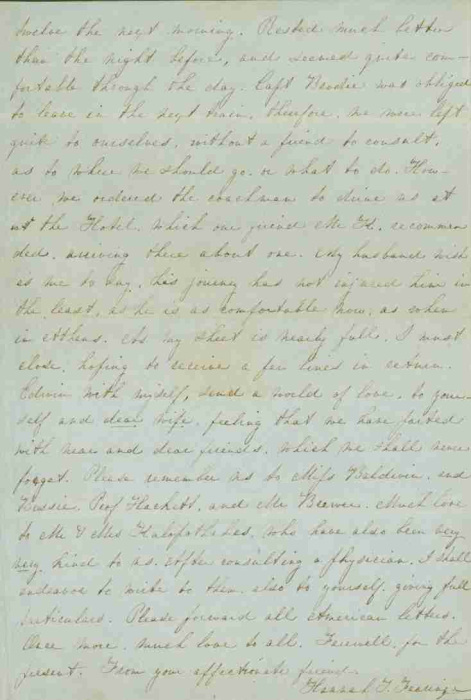 twelve the next morning. Rested much better
than the night before, and seemed quite com-
fortable through the day. Capt was obliged
to leave in the next train, therefore, we were left
quite to ourselves, without a friend to consult,
as to where we should go, or what to do. How-
ever we ordered the coachman to drive us at
at the Hotel, which our friend Mr H. recommen
ded, arriving there about one. My husband wish
es me to say, his journey has not injured him in
the least, as he is as comfortable now, as when
in Athens. As my sheet is nearly full, I must
close, hoping to receive a few lines in return.
Edwin with myself, send a world of love, to your-
self and dear wife, feeling that we have parted
with near and dear friends, which we shall never
forget. Please remember us to Miss Baldwin, and
Prof Hackett, and Mr Brewer. Much love
to Mr & Mrs Kalopothakes, who have also been very
very kind to us. After consulting a physician, I shall
endeavor to write to them, also to yourself, giving full
particulars. Please forward all American letters.
Once more, much love to all. Farewell, for the
present. From your affectionate friend.
Hannah T.